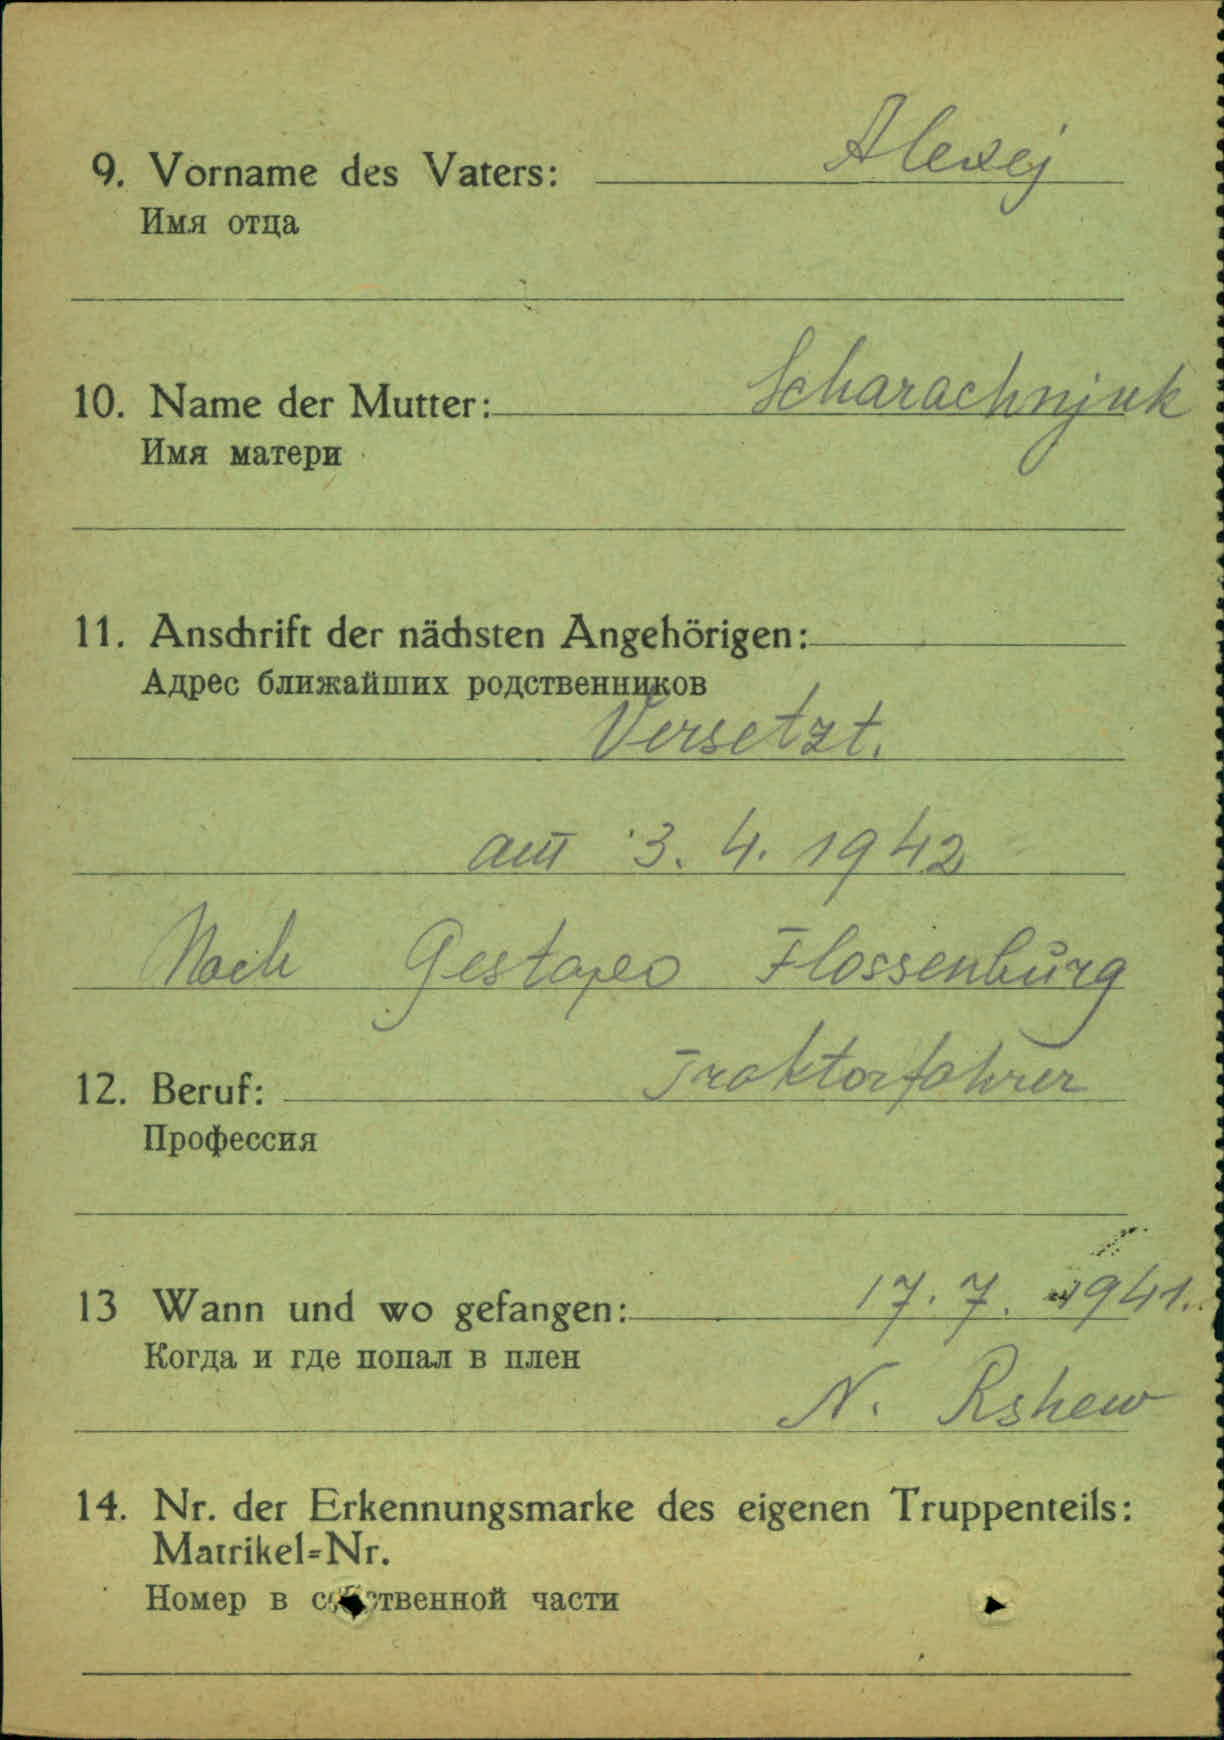 9. Vorname des Vaters: Alexej
Имя отца
10. Name der Mutter: Scharachnjuk
Имя матери
11. Anschrift der nächsten Angehörigen:
Адрес ближайших родственников
Versetzt.
am 3. 4. 1942
Nach Gestapo Flossenbürg
12. Beruf: Traktorfahrer
Профессия
13 Wann und wo gefangen: 17. 7. 1941.
Когда и где попал в плен
N. Rshew
14. Nr. der Erkennungsmarke des eigenen Truppenteils:
Matrikel=Nr.
Номер в собственной части